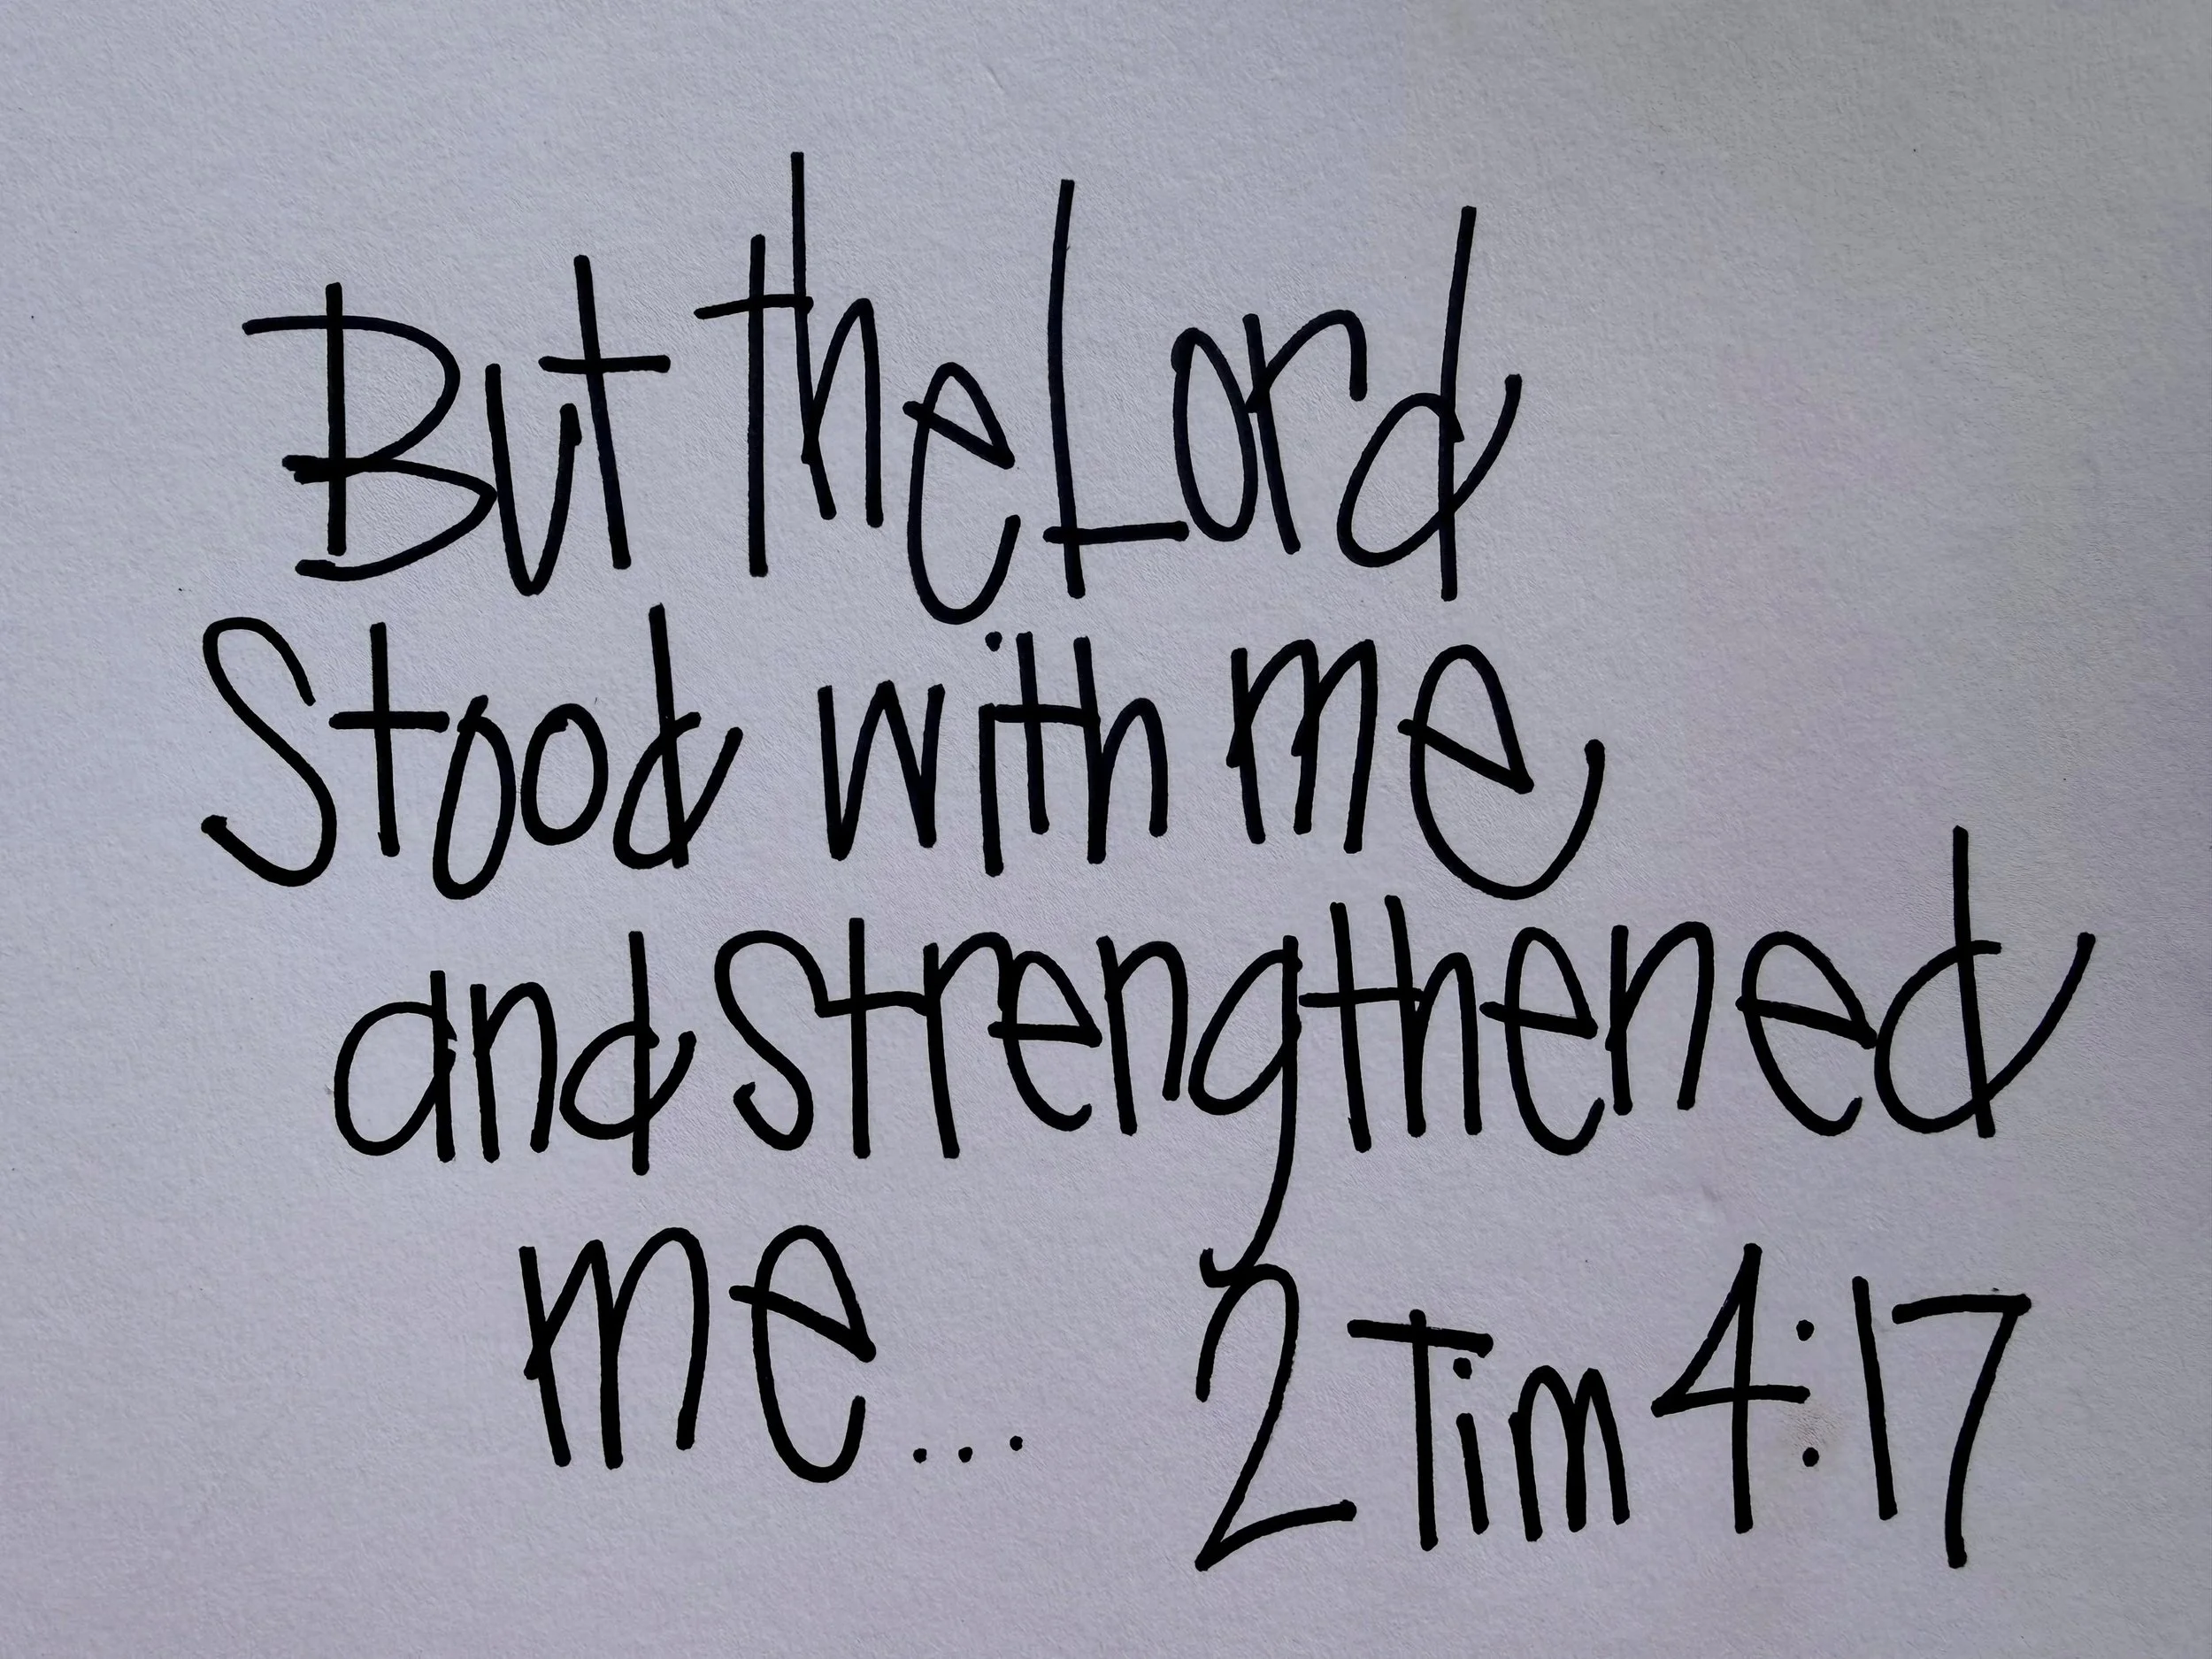 But the Lord
Stood with me
and strengthened
me... 2 Tim 4:17